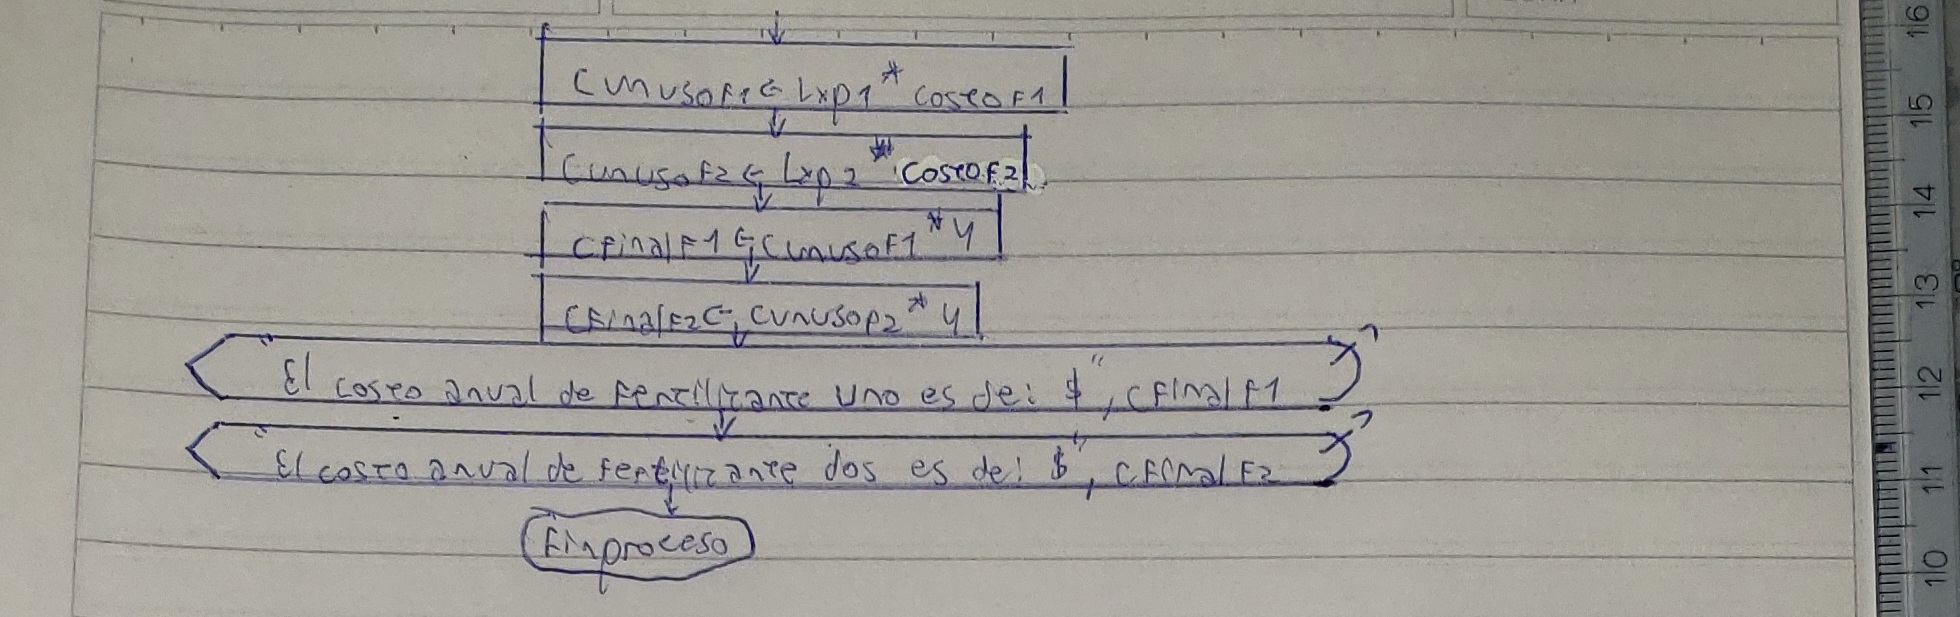 CunusoF1 ← Lxp1 * CostoF1
CunusoF2 ← Lxp2 * CostoF2
CFinalF1 ← CunusoF1 * 4
CFinalF2 ← Cunusop2 * 4
"El costo anual de Fertilizante uno es de: $", CFinalF1
"El costo anual de Fertilizante dos es de: $", CFinalF2
Finproceso
16
15
14
13
12
11
10